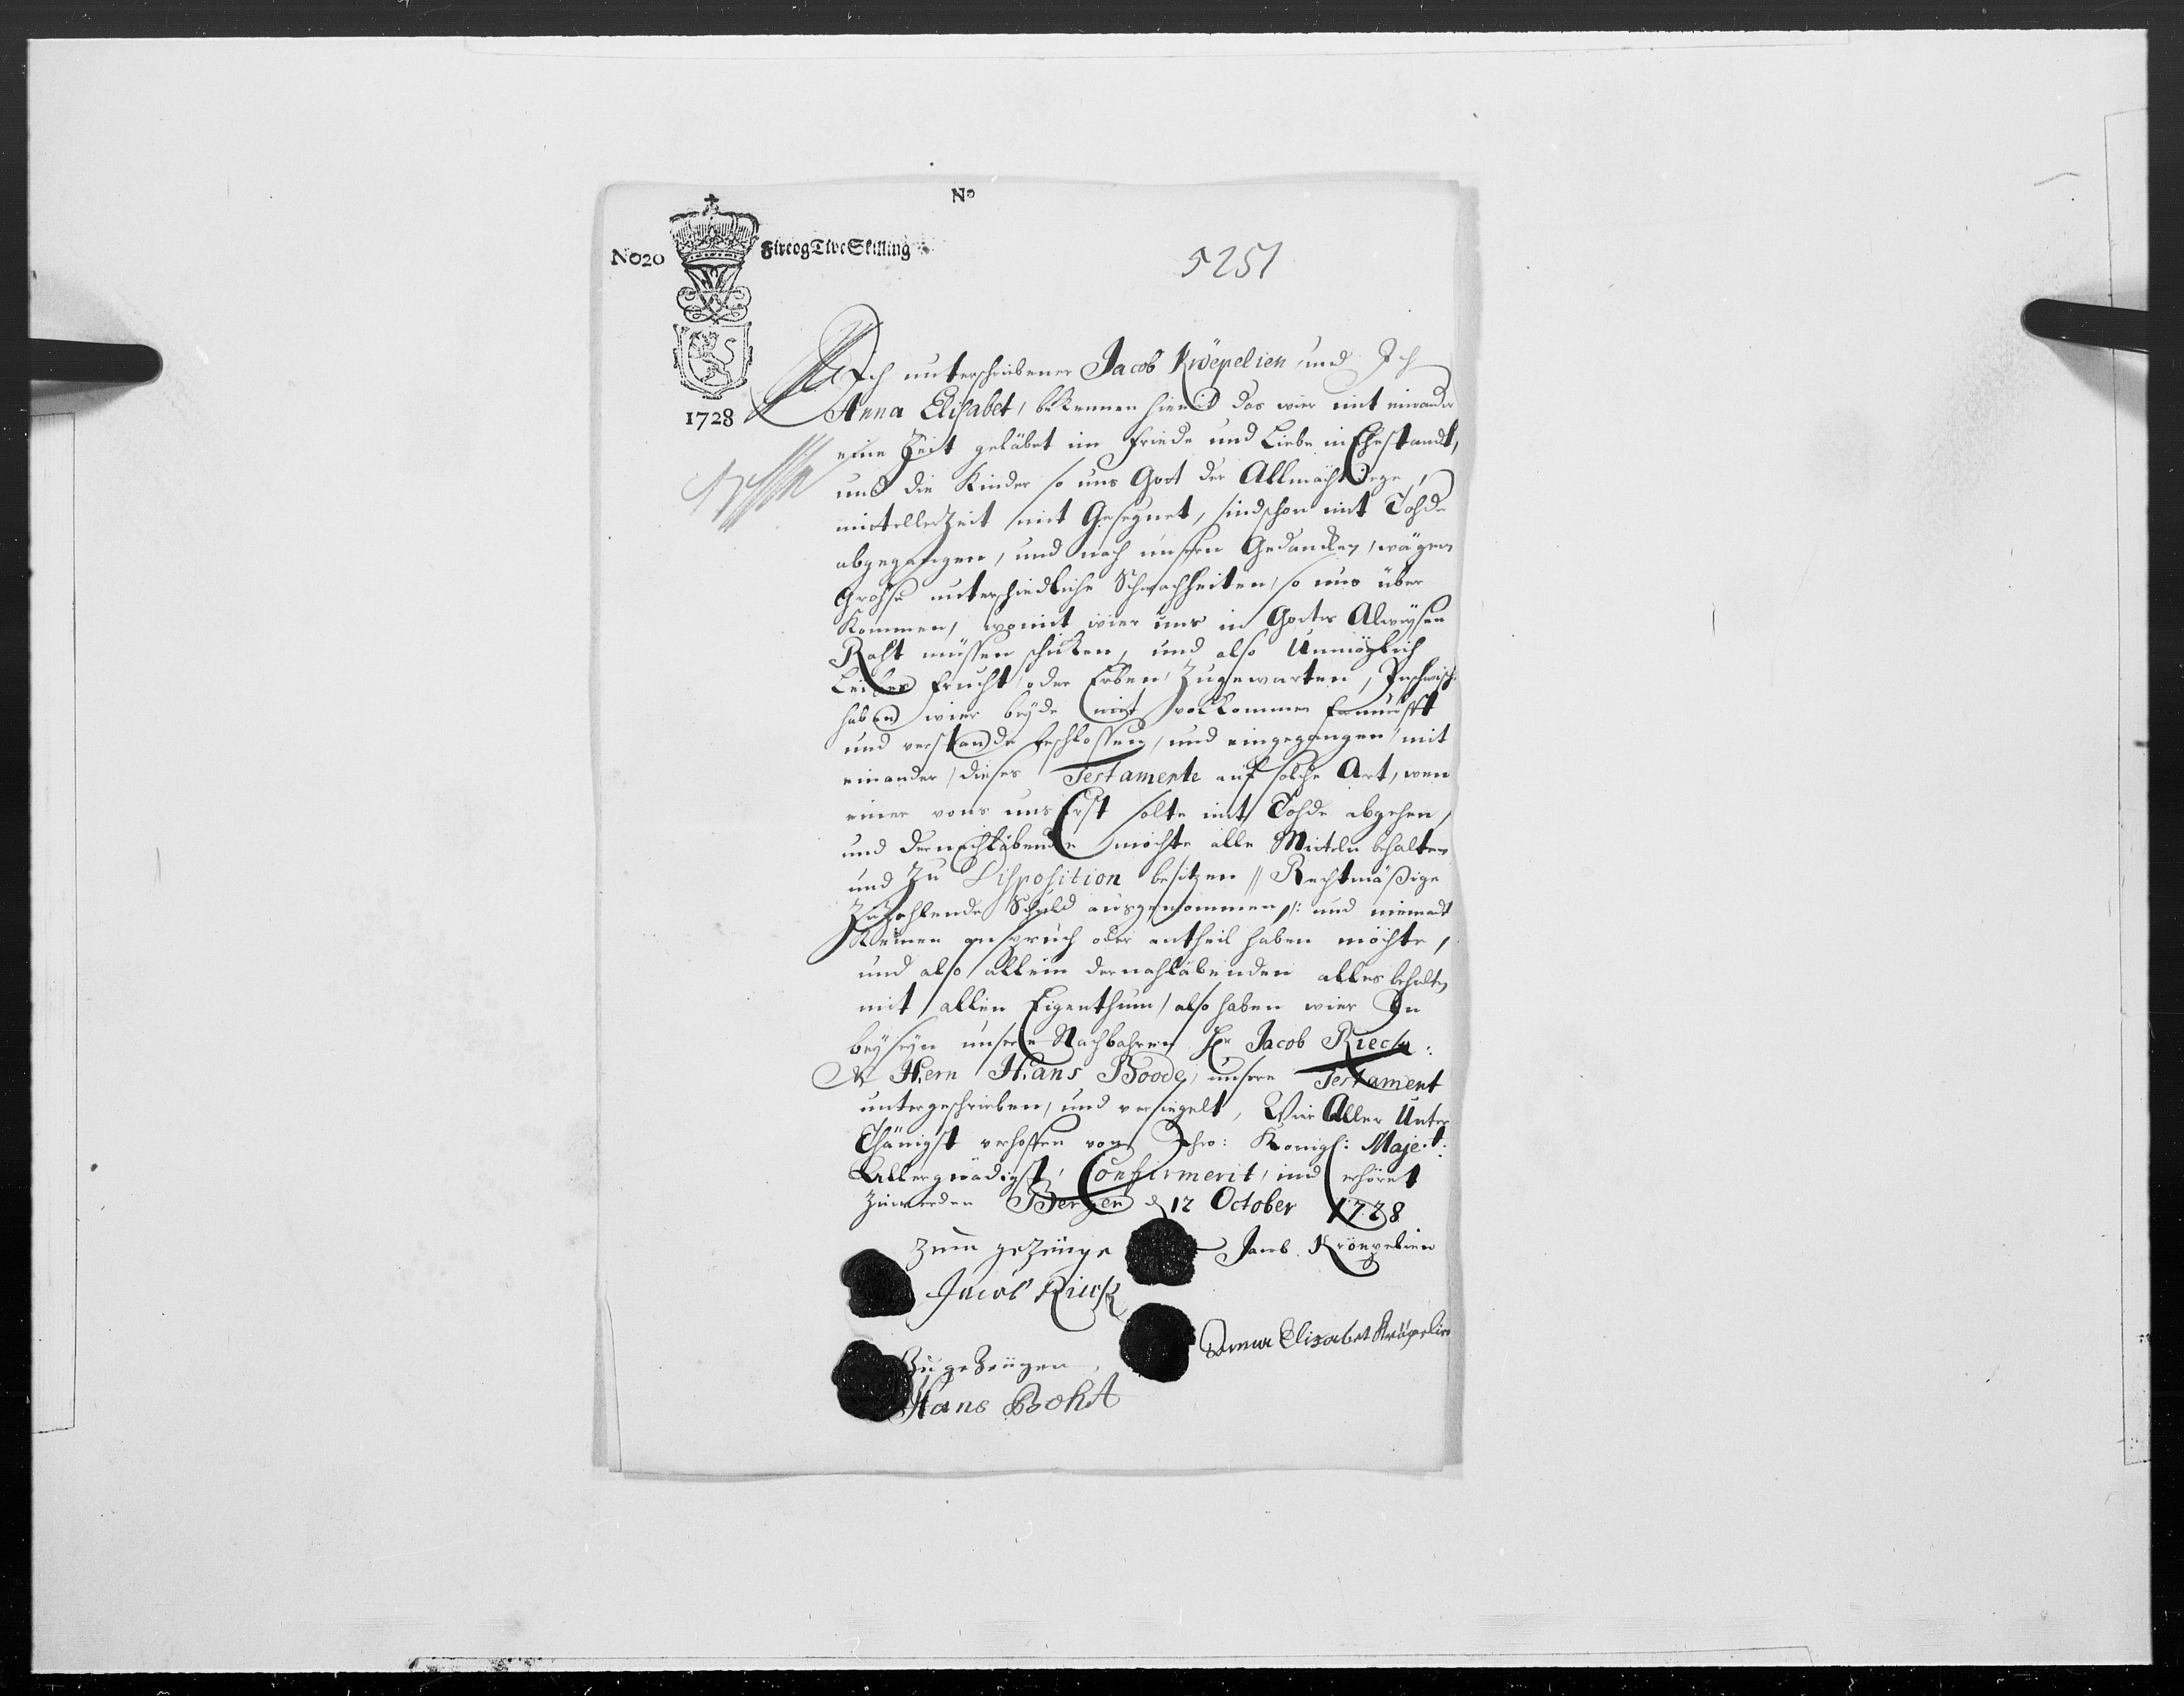 No
No20
Fireog Tive Skilling
5251
1728
Ich unterschriebener Jacob Kröepelien und Ich
Anna Elisabet, bekennen hiemit das wier mit einander
eine Zeit geläbet im friede und Liebe in Ehestandt,
und die Kinder so uns Gott der Allmächtiege,
mittellerZeit mit Gesegnet, sind schon mit Tohde
abgegangen, und nach unsern Gedancken, wägen
Grohse unterschiedliche Schwachheiten, so uns über
Kommen, womit wier uns in Gottes Alweysen
Raht müssen schicken, und also Unmöglich
Leibes frucht oder Erben, Zugewarten,
haben wier beyde mit vollkommen
und verstande beschlossen, und eingegangen mit
einander, dieses Testamente auf solche Art, wen
einer vons uns Erst solte mit Tohde abgehen,
und der nachläbende möchte alle Mitteln behalten
und Zu Disposition besitzen // Rechtmäßige
Zuzahlende Schuld ausgenommen /: und niemandt
Keinen anspruch oder antheil haben möchte,
und also allein der nahläbenden alles behalten
mit allen Eigenthum, also haben wier In
beyseyn unsere Nachbahren Hr Jacob Rieck:
& Hern Hans Boode, unsere Testament
untergeschrieben, und versiegelt, Wie Aller Unter
Thänigst verhoffen von Ihro: Königl: Majet:
Allergnädigst, Confirmerit, und erhöret
Zuwerden Bergen d 12 October 1728
Zum geZeuge
Jacob Kröepelien
Jacob Rieck
Anna Elisabet Kröpelien
Zu geZeugen
Hans Boht